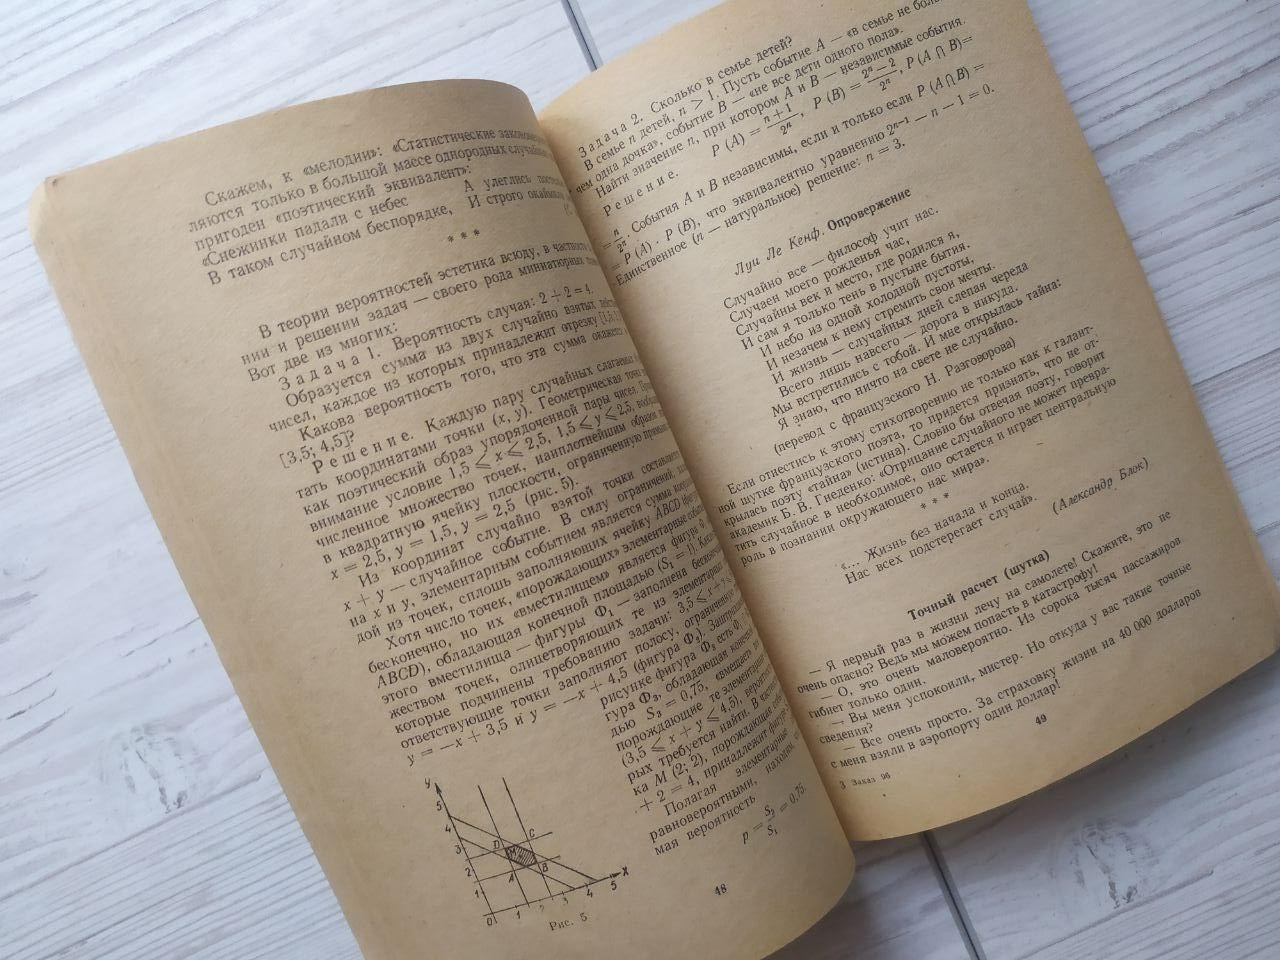 Скажем, к «мелодии»: «Статистические
ляются только в большой массе однородных
пригоден «поэтический эквивалент»:
«Снежинки падали с небес
В таком случайном беспорядке,
А улеглись
И строго
* * *
В теории вероятностей эстетика всюду, в частности
нии и решении задач — своего рода миниатюрных
Вот две из многих:
Задача 1. Вероятность случая: 2 + 2 = 4.
Образуется сумма из двух случайно взятых
чисел, каждое из которых принадлежит отрезку
Какова вероятность того, что эта сумма окажется
[3,5; 4,5]?
Решение. Каждую пару случайных слагаемых
тать координатами точки (x, y). Геометрическая точка
как поэтический образ упорядоченной пары чисел.
внимание условие 1,5 ⩽ x ⩽ 2,5, 1,5 ⩽ y ⩽ 2,5,
численное множество точек, наиплотнейшим образом
в квадратную ячейку плоскости, ограниченную
x = 2,5, y = 1,5, y = 2,5 (рис. 5).
Из координат случайно взятой точки
x + y — случайное событие. В силу ограничений,
на x и y, элементарным событием является сумма
дой из точек, сплошь заполняющих ячейку ABCD
Хотя число точек, «порождающих» элементарные
бесконечно, но их «вместилищем» является фигура
ABCD), обладающая конечной площадью (S₁ = 1).
этого вместилища — фигуры Ф₁ — заполнена
жеством точек, олицетворяющих те из элементарных
которые подчинены требованию задачи: 3,5 ⩽ x +
ответствующие точки заполняют полосу,
y = —x + 3,5 и y = —x + 4,5 (фигура Ф₂).
рисунке фигура Ф₃ есть
гура Ф₃, обладающая
дью S₃ = 0,75, «вмещает
порождающие те
(3,5 ⩽ x + y ⩽ 4,5),
рых требуется найти. В
ка M (2; 2), порождающая
+ 2 = 4, принадлежит фигуре
Полагая элементарные
равновероятными, находим,
мая вероятность
p = S₃/S₁ = 0,75.
y
5
4
3
2
1
0
1
2
3
4
5
x
D
C
M
A
B
Рис. 5
48
Задача 2. Сколько в семье детей?
В семье n детей, n > 1. Пусть событие A — «в семье не
чем одна дочка», событие B — «не все дети одного пола».
Найти значение n, при котором A и B — независимые события.
Решение. P (A) = (n + 1)/2ⁿ, P (B) = (2ⁿ − 2)/2ⁿ, P (A ∩ B) =
= n/2ⁿ. События A и B независимы, если и только если P (A ∩ B) =
= P (A) · P (B), что эквивалентно уравнению 2ⁿ⁻¹ − n − 1 = 0.
Единственное (n — натуральное) решение: n = 3.
Луи Ле Кенф. Опровержение
Случайно все — философ учит нас.
Случаен моего рожденья час,
Случайны век и место, где родился я,
И сам я только тень в пустыне бытия.
И небо из одной холодной пустоты,
И незачем к нему стремить свои мечты.
И жизнь — случайных дней слепая череда
Всего лишь навсего — дорога в никуда.
Мы встретились с тобой. И мне открылась тайна:
Я знаю, что ничто на свете не случайно.
(перевод с французского Н. Разговорова)
Если отнестись к этому стихотворению не только как к галант-
ной шутке французского поэта, то придется признать, что не от-
крылась поэту «тайна» (истина). Словно бы отвечая поэту, говорит
академик Б. В. Гнеденко: «Отрицание случайного не может превра-
тить случайное в необходимое, оно остается и играет центральную
роль в познании окружающего нас мира».
* * *
«... Жизнь без начала и конца.
Нас всех подстерегает случай».
(Александр Блок)
Точный расчет (шутка)
— Я первый раз в жизни лечу на самолете! Скажите, это не
очень опасно? Ведь мы можем попасть в катастрофу!
— О, это очень маловероятно. Из сорока тысяч пассажиров
гибнет только один.
— Вы меня успокоили, мистер. Но откуда у вас такие точные
сведения?
— Все очень просто. За страховку жизни на 40 000 долларов
с меня взяли в аэропорту один доллар!
3 Заказ 96
49